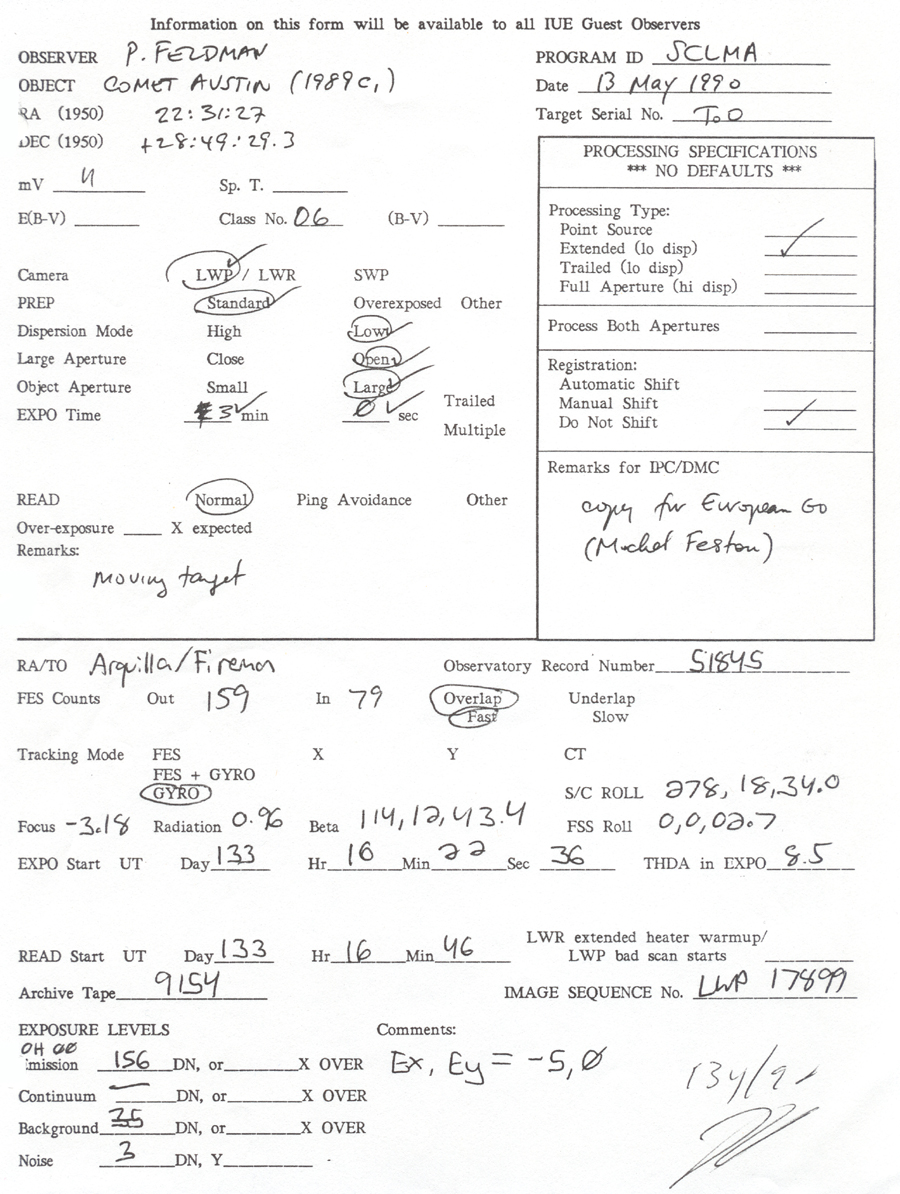 Information on this form will be available to all IUE Guest Observers
OBSERVER P. FELDMAN
PROGRAM ID SCLMA
OBJECT COMET AUSTIN (1989c,)
Date 13 May 1990
RA (1950) 22:31:27
Target Serial No. T.O
DEC (1950) +28:49:29.3
PROCESSING SPECIFICATIONS
*** NO DEFAULTS ***
mV 4 Sp. T.
E(B-V) Class No. 06 (B-V)
Processing Type:
Point Source
Extended (lo disp)
Trailed (lo disp)
Full Aperture (hi disp)
Camera LWP / LWR SWP
PREP Standard Overexposed Other
Dispersion Mode High Low
Process Both Apertures
Large Aperture Close Open
Object Aperture Small Large
EXPO Time 3 min 0 sec Trailed
Multiple
Registration:
Automatic Shift
Manual Shift
Do Not Shift
Remarks for IPC/DMC
copy for European GO
(Michel Feston)
READ Normal Ping Avoidance Other
Over-exposure X expected
Remarks:
Moving target
RA/TO Arquilla/Fireman
Observatory Record Number 51845
FES Counts Out 159 In 79 Overlap Underlap
Fast Slow
Tracking Mode FES X Y CT
FES + GYRO
GYRO
S/C ROLL 278, 18, 34.0
Focus -3.18 Radiation 0.96 Beta 114, 12, 43.4 FSS Roll 0,0,02.7
EXPO Start UT Day 133 Hr 16 Min 22 Sec 36 THDA in EXPO 8.5
LWR extended heater warmup/
READ Start UT Day 133 Hr 16 Min 46 LWP bad scan starts
Archive Tape 9154 IMAGE SEQUENCE No. LWP 17899
EXPOSURE LEVELS Comments:
OH
mission 156 DN, or X OVER Ex, Ey = -5,0
Continuum — DN, or X OVER
Background 35 DN, or X OVER
Noise 3 DN, Y